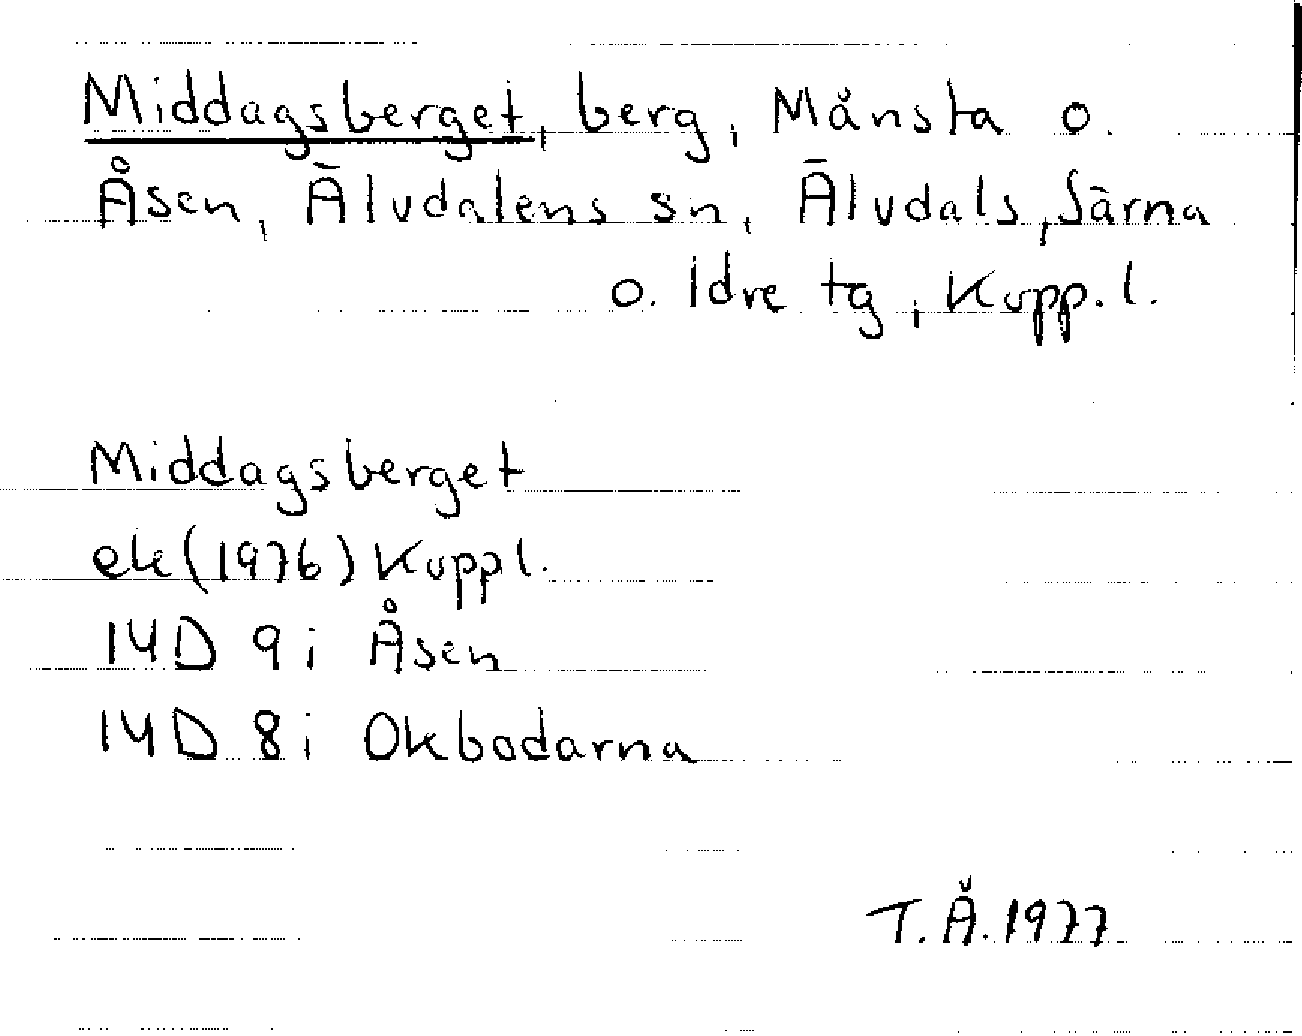 Middagsberget, berg, Månsta o.
Åsen, Älvdalens sn, Älvdals, Särna
o. Idre tg, Kopp. l.
Middagsberget
ek (1976) Koppl.
14D 9i Åsen
14D 8i Okbodarna
T. Å. 1977